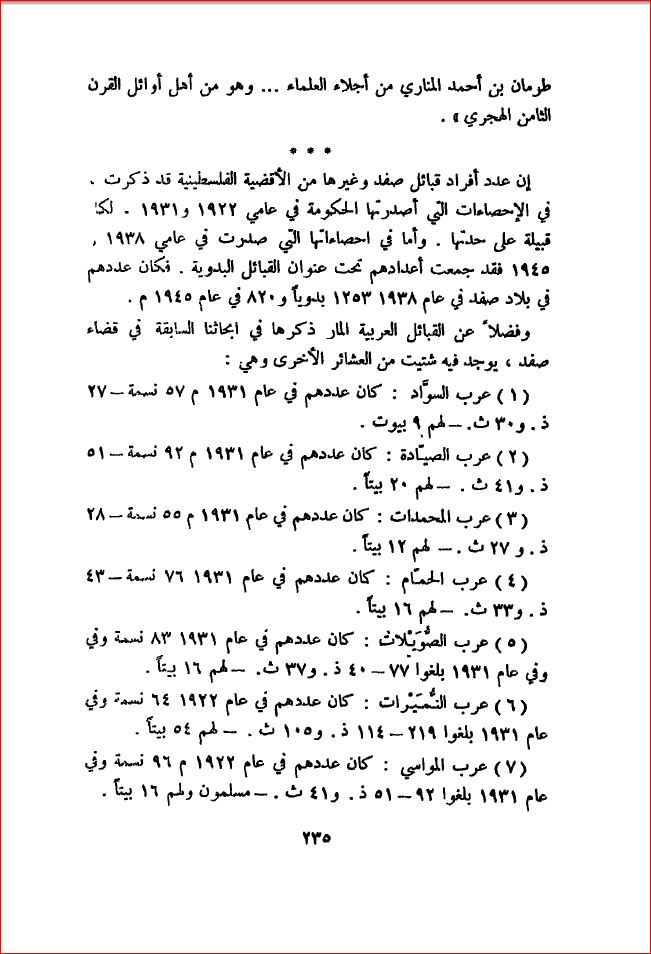 طومان بن أحمد المناري من أجلاء العلماء ... وهو من أهل أوائل القرن
الثامن الهجري » .
* * *
إن عدد أفراد قبائل صفد وغيرها من الأقضية الفلسطينية قد ذكرت .
في الإحصاءات التي أصدرتها الحكومة في عامي ١٩٢٢ و١٩٣١ . لكل
قبيلة على حدتها . وأما في احصاءاتها التي صدرت في عامي ١٩٣٨ ,
١٩٤٥ فقد جمعت أعدادهم تحت عنوان القبائل البدوية . فكان عددهم
في بلاد صفد في عام ١٩٣٨ ١٢٥٣ بدوياً و٨٢٠ في عام ١٩٤٥ م .
وفضلاً عن القبائل العربية المار ذكرها في ابحاثنا السابقة في قضاء
صفد ، يوجد فيه شتيت من العشائر الأخرى وهي :
(١) عرب السوَّاد : كان عددهم في عام ١٩٣١ م ٥٧ نسمة – ٢٧
ذ . و٣٠ ث. – لهم ٩ بيوت .
(٢) عرب الصيّادة : كان عددهم في عام ١٩٣١ م ٩٢ نسمة – ٥١
ذ . و٤١ ث . – لهم ٢٠ بيتاً .
(٣) عرب المحمدات : كان عددهم في عام ١٩٣١ م ٥٥ نسمة – ٢٨
ذ . و ٢٧ ث . – لهم ١٢ بيتاً .
(٤) عرب الحمّام : كان عددهم في عام ١٩٣١ ٧٦ نسمة – ٤٣
ذ . و٣٣ ث. – لهم ١٦ بيتاً .
(٥) عرب الصُّوَيْلات : كان عددهم في عام ١٩٣١ ٨٣ نسمة وفي
وفي عام ١٩٣١ بلغوا ٧٧ – ٤٠ ذ . و٣٧ ث. – لهم ١٦ بيتاً .
(٦) عرب النُّمَيْرات : كان عددهم في عام ١٩٢٢ ٦٤ نسمة وفي
عام ١٩٣١ بلغوا ٢١٩ – ١١٤ ذ . و١٠٥ ث . – لهم ٥٤ بيتاً .
(٧) عرب المواسي : كان عددهم في عام ١٩٢٢ م ٩٦ نسمة وفي
عام ١٩٣١ بلغوا ٩٢ – ٥١ ذ . و٤١ ث . – مسلمون ولهم ١٦ بيتاً .
٢٣٥